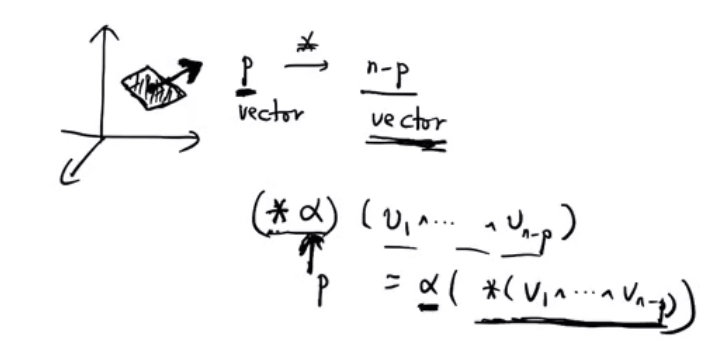 p *→ n-p
vector vector
(* α) (v₁ ∧ ⋯ ∧ vₙ₋ₚ)
p = α( *(v₁ ∧ ⋯ ∧ vₙ₋ₚ))